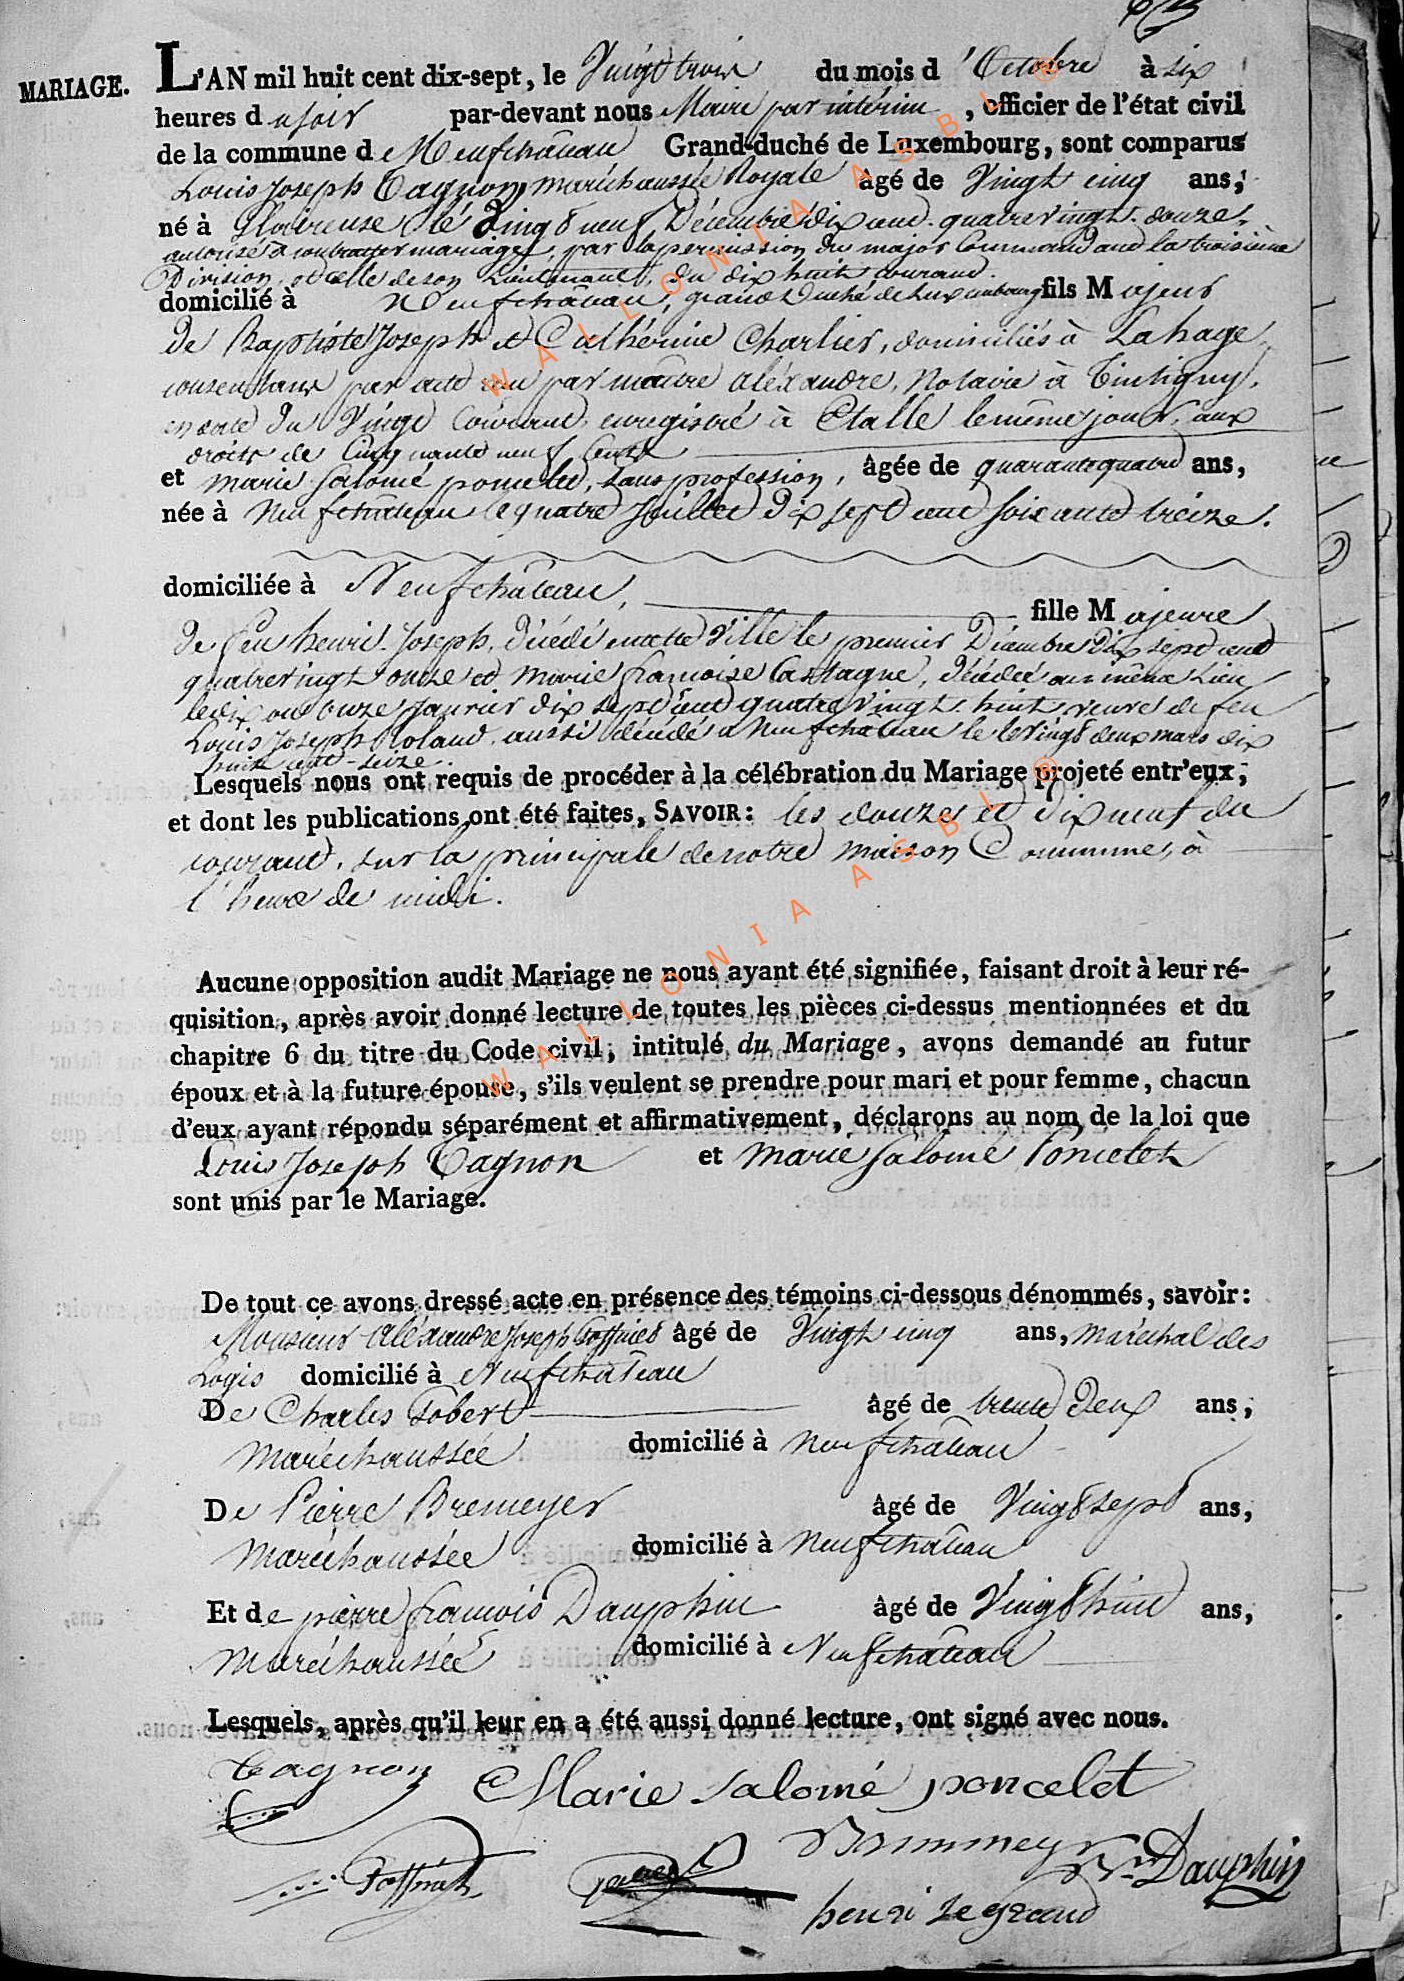 MARIAGE.
L'AN mil huit cent dix-sept, le Vingt trois du mois d'Octobre à six
heures du soir par-devant nous Maire par intérim, officier de l'état civil
de la commune de Neufchâteau Grand-duché de Luxembourg, sont comparus
Louis Joseph Tagnon, maréchaussée Royale âgé de Vingt cinq ans,
né à le Vingt neuf Décembre dix sept cent quatre vingt douze,
autorisé à contracter mariage, par la permission du major Commandant la troisième
Division, et celle de son Lieutenant, du dix huit courant.
domicilié à Neufchâteau, grand Duché de Luxembourg fils Majeur
De Baptiste Joseph et Cathérine Charlier, domiciliés à Lahage,
consentans par acte reçu par maître Aléxandre, Notaire à Tintigny,
en date du Vingt Courant, enregistré à Etalle le même jour, aux
droits de Cinquante neuf Cents
et marie Salomé poncelet, sans profession, âgée de quarante quatre ans,
née à Neufchâteau le quatre Juillet Dix sept cent soixante treize.
domiciliée à Neufchâteau, fille Majeure
de feu henri Joseph, décédé en cette Ville le premier Décembre Dix sept cent
quatre vingt onze et marie françoise Castagne, décédée au même Lieu
le dix ou onze Janvier dix sept cent quatre vingt huit, veuve de feu
Louis Joseph Roland, aussi décédé à Neufchâteau le Vingt deux mars dix
huit cent seize.
Lesquels nous ont requis de procéder à la célébration du Mariage projeté entr'eux,
et dont les publications ont été faites, SAVOIR: les douze et dix neuf du
courant, sur la principale de notre maison Commune, à
l'heure de midi.
Aucune opposition audit Mariage ne nous ayant été signifiée, faisant droit à leur ré-
quisition, après avoir donné lecture de toutes les pièces ci-dessus mentionnées et du
chapitre 6 du titre du Code civil, intitulé du Mariage, avons demandé au futur
époux et à la future épouse, s'ils veulent se prendre pour mari et pour femme, chacun
d'eux ayant répondu séparément et affirmativement, déclarons au nom de la loi que
Louis Joseph Tagnon et Marie Salomé Poncelet
sont unis par le Mariage.
De tout ce avons dressé acte en présence des témoins ci-dessous dénommés, savoir:
Monsieur Aléxandre Joseph âgé de Vingt cinq ans, maréchal des
Logis domicilié à Neufchâteau
De Charles Gobert âgé de trente deux ans,
Maréchaussée domicilié à Neufchâteau
De Pierre Bremeyer âgé de Vingt sept ans,
Maréchaussée domicilié à Neufchâteau
Et de pierre françois Dauphin âgé de Vingt huit ans,
Maréchaussée domicilié à Neufchâteau
Lesquels, après qu'il leur en a été aussi donné lecture, ont signé avec nous.
Tagnon Marie Salomé poncelet
Dauphin
henri Legrand
WALLONIA ASBL ®
WALLONIA ASBL ®